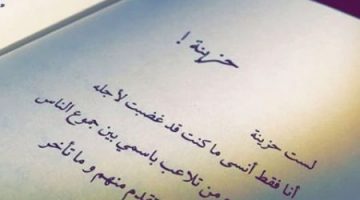 حزينة !
لست حزينة
أنا فقط أنسى ما كنت قد غضبت لأجله
من تلاعب باسمي بين جموع الناس
تقدم منهم و ما تأخر